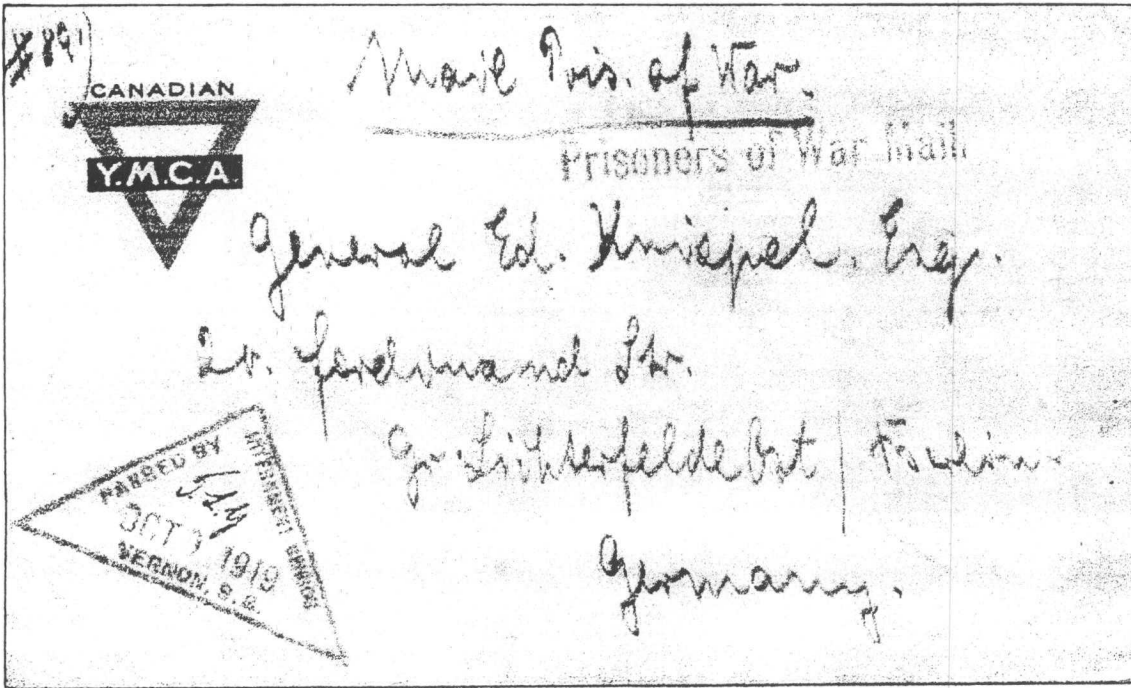 #891)
CANADIAN
Y.M.C.A.
Mail Pris. of War.
Prisoners of War Mail
General Ed. Knispel. Esq.
20. Ferdinand Str.
Gr. Lichterfelde Ost / Berlin
Germany.
PASSED BY
INTERNMENT
OCT 1919
VERNON, B.C.